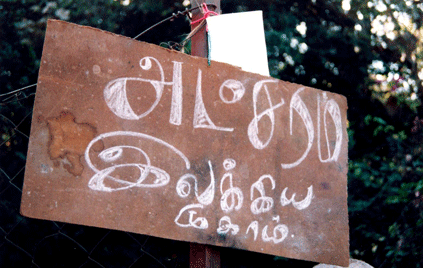 அட்சரம்
இலக்கிய
முகாம்.